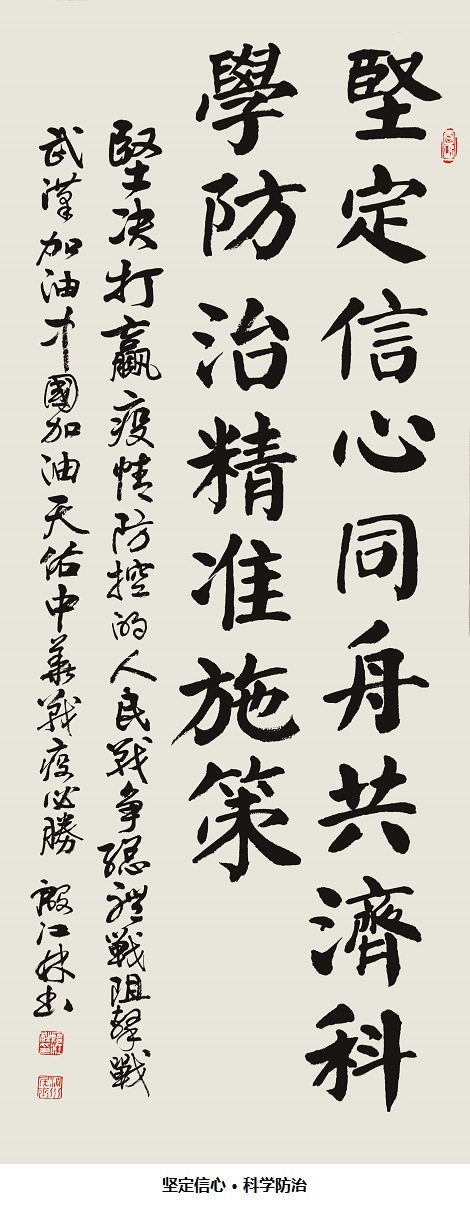 堅定信心同舟共濟科
學防治精准施策
堅决打赢疫情防控的人民戰争總體戰阻擊戰
武漢加油中國加油天佑中華戰疫必勝 殷江林书
坚定信心 • 科学防治